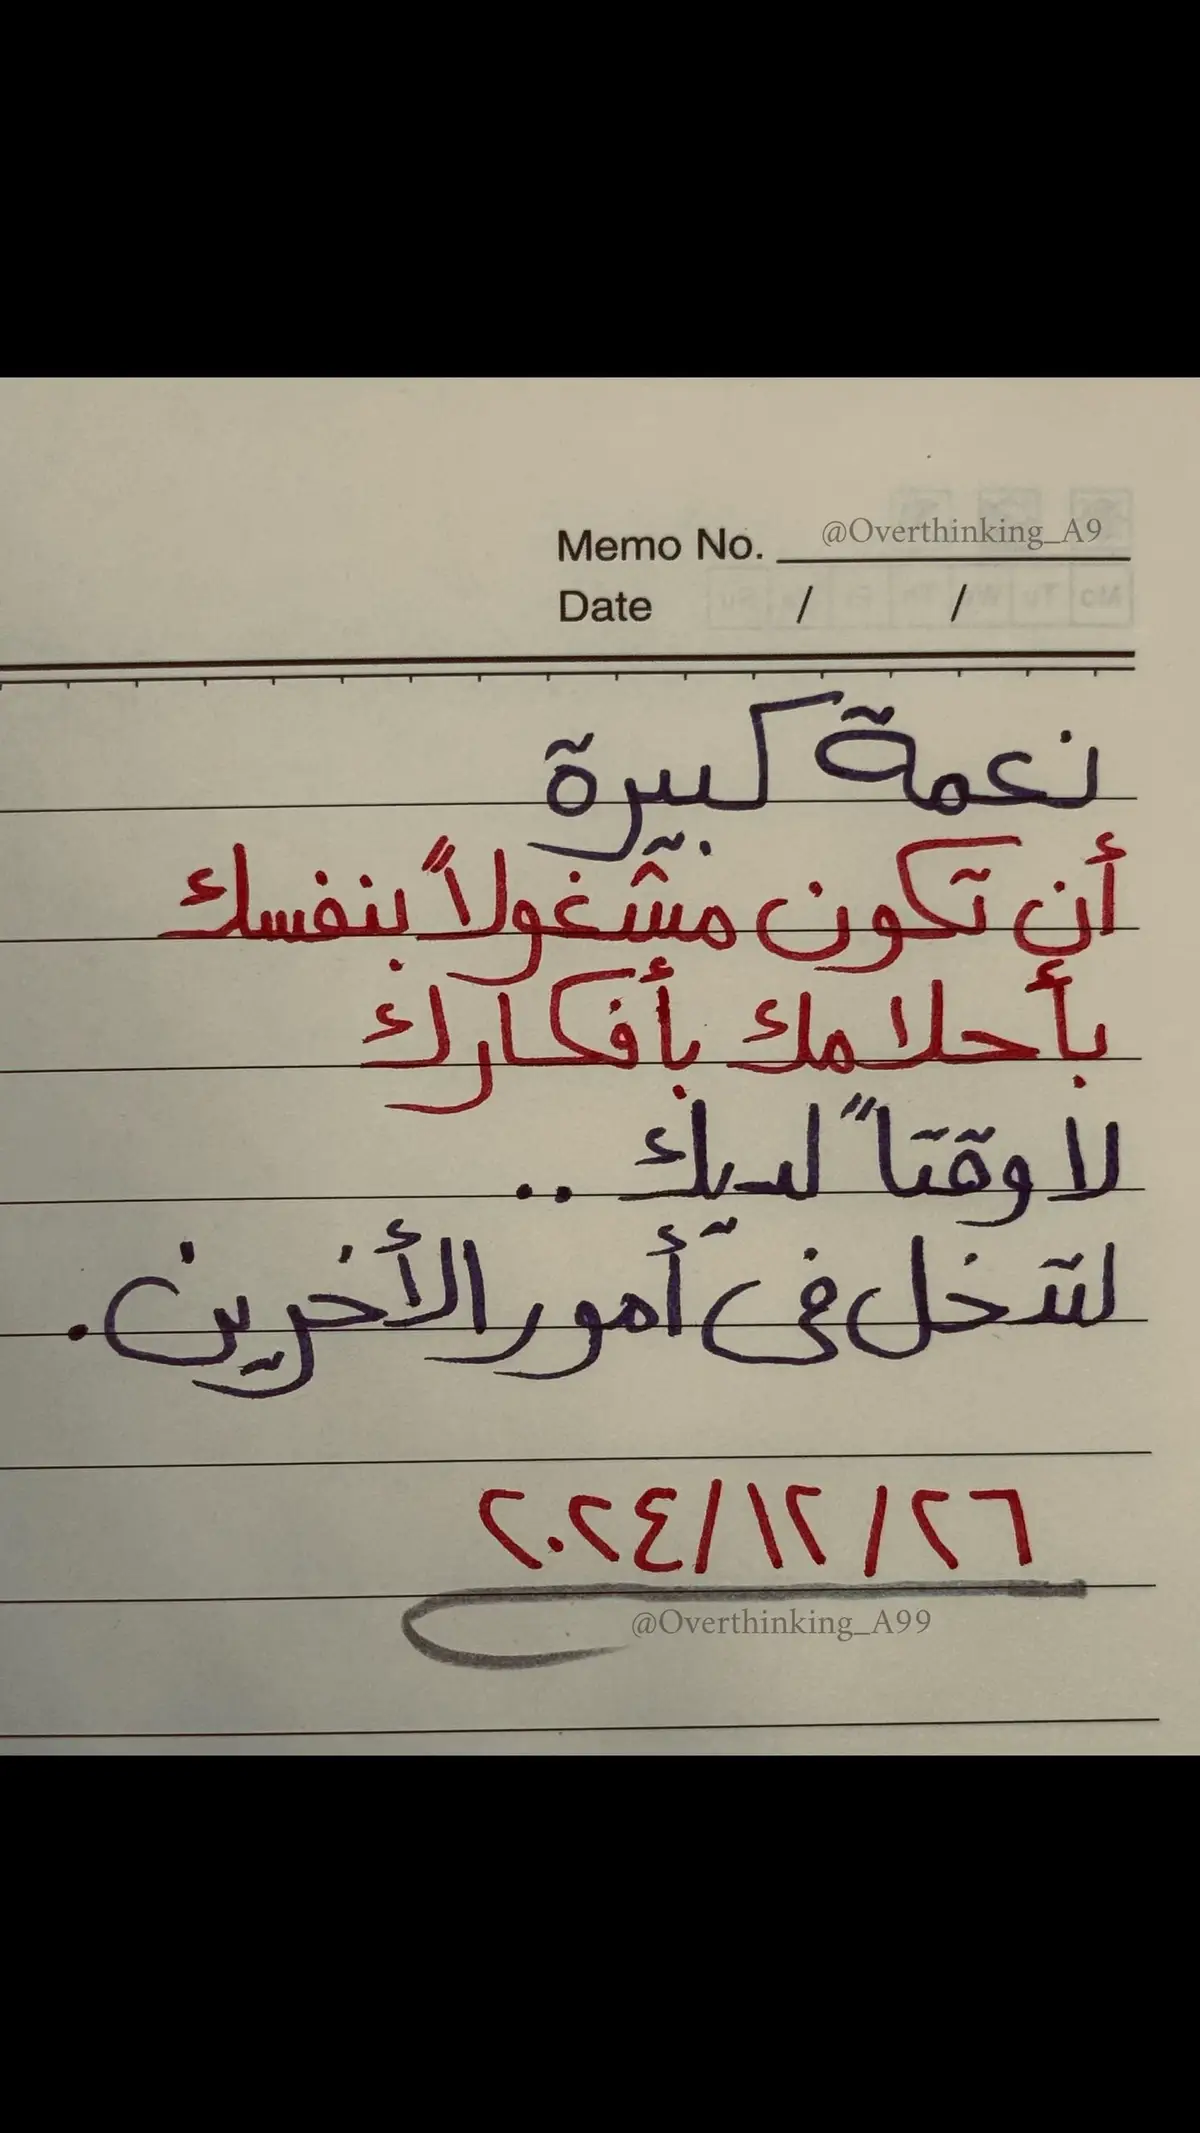 Memo No. @Overthinking_A9
Date / /
نعمة كبيرة
أن تكون مشغولاً بنفسك
بأحلامك بأفكارك
لا وقتاً لديك ..
لتدخل فى أمور الأخرين.
٢٠٢٤/١٢/٢٦
@Overthinking_A99